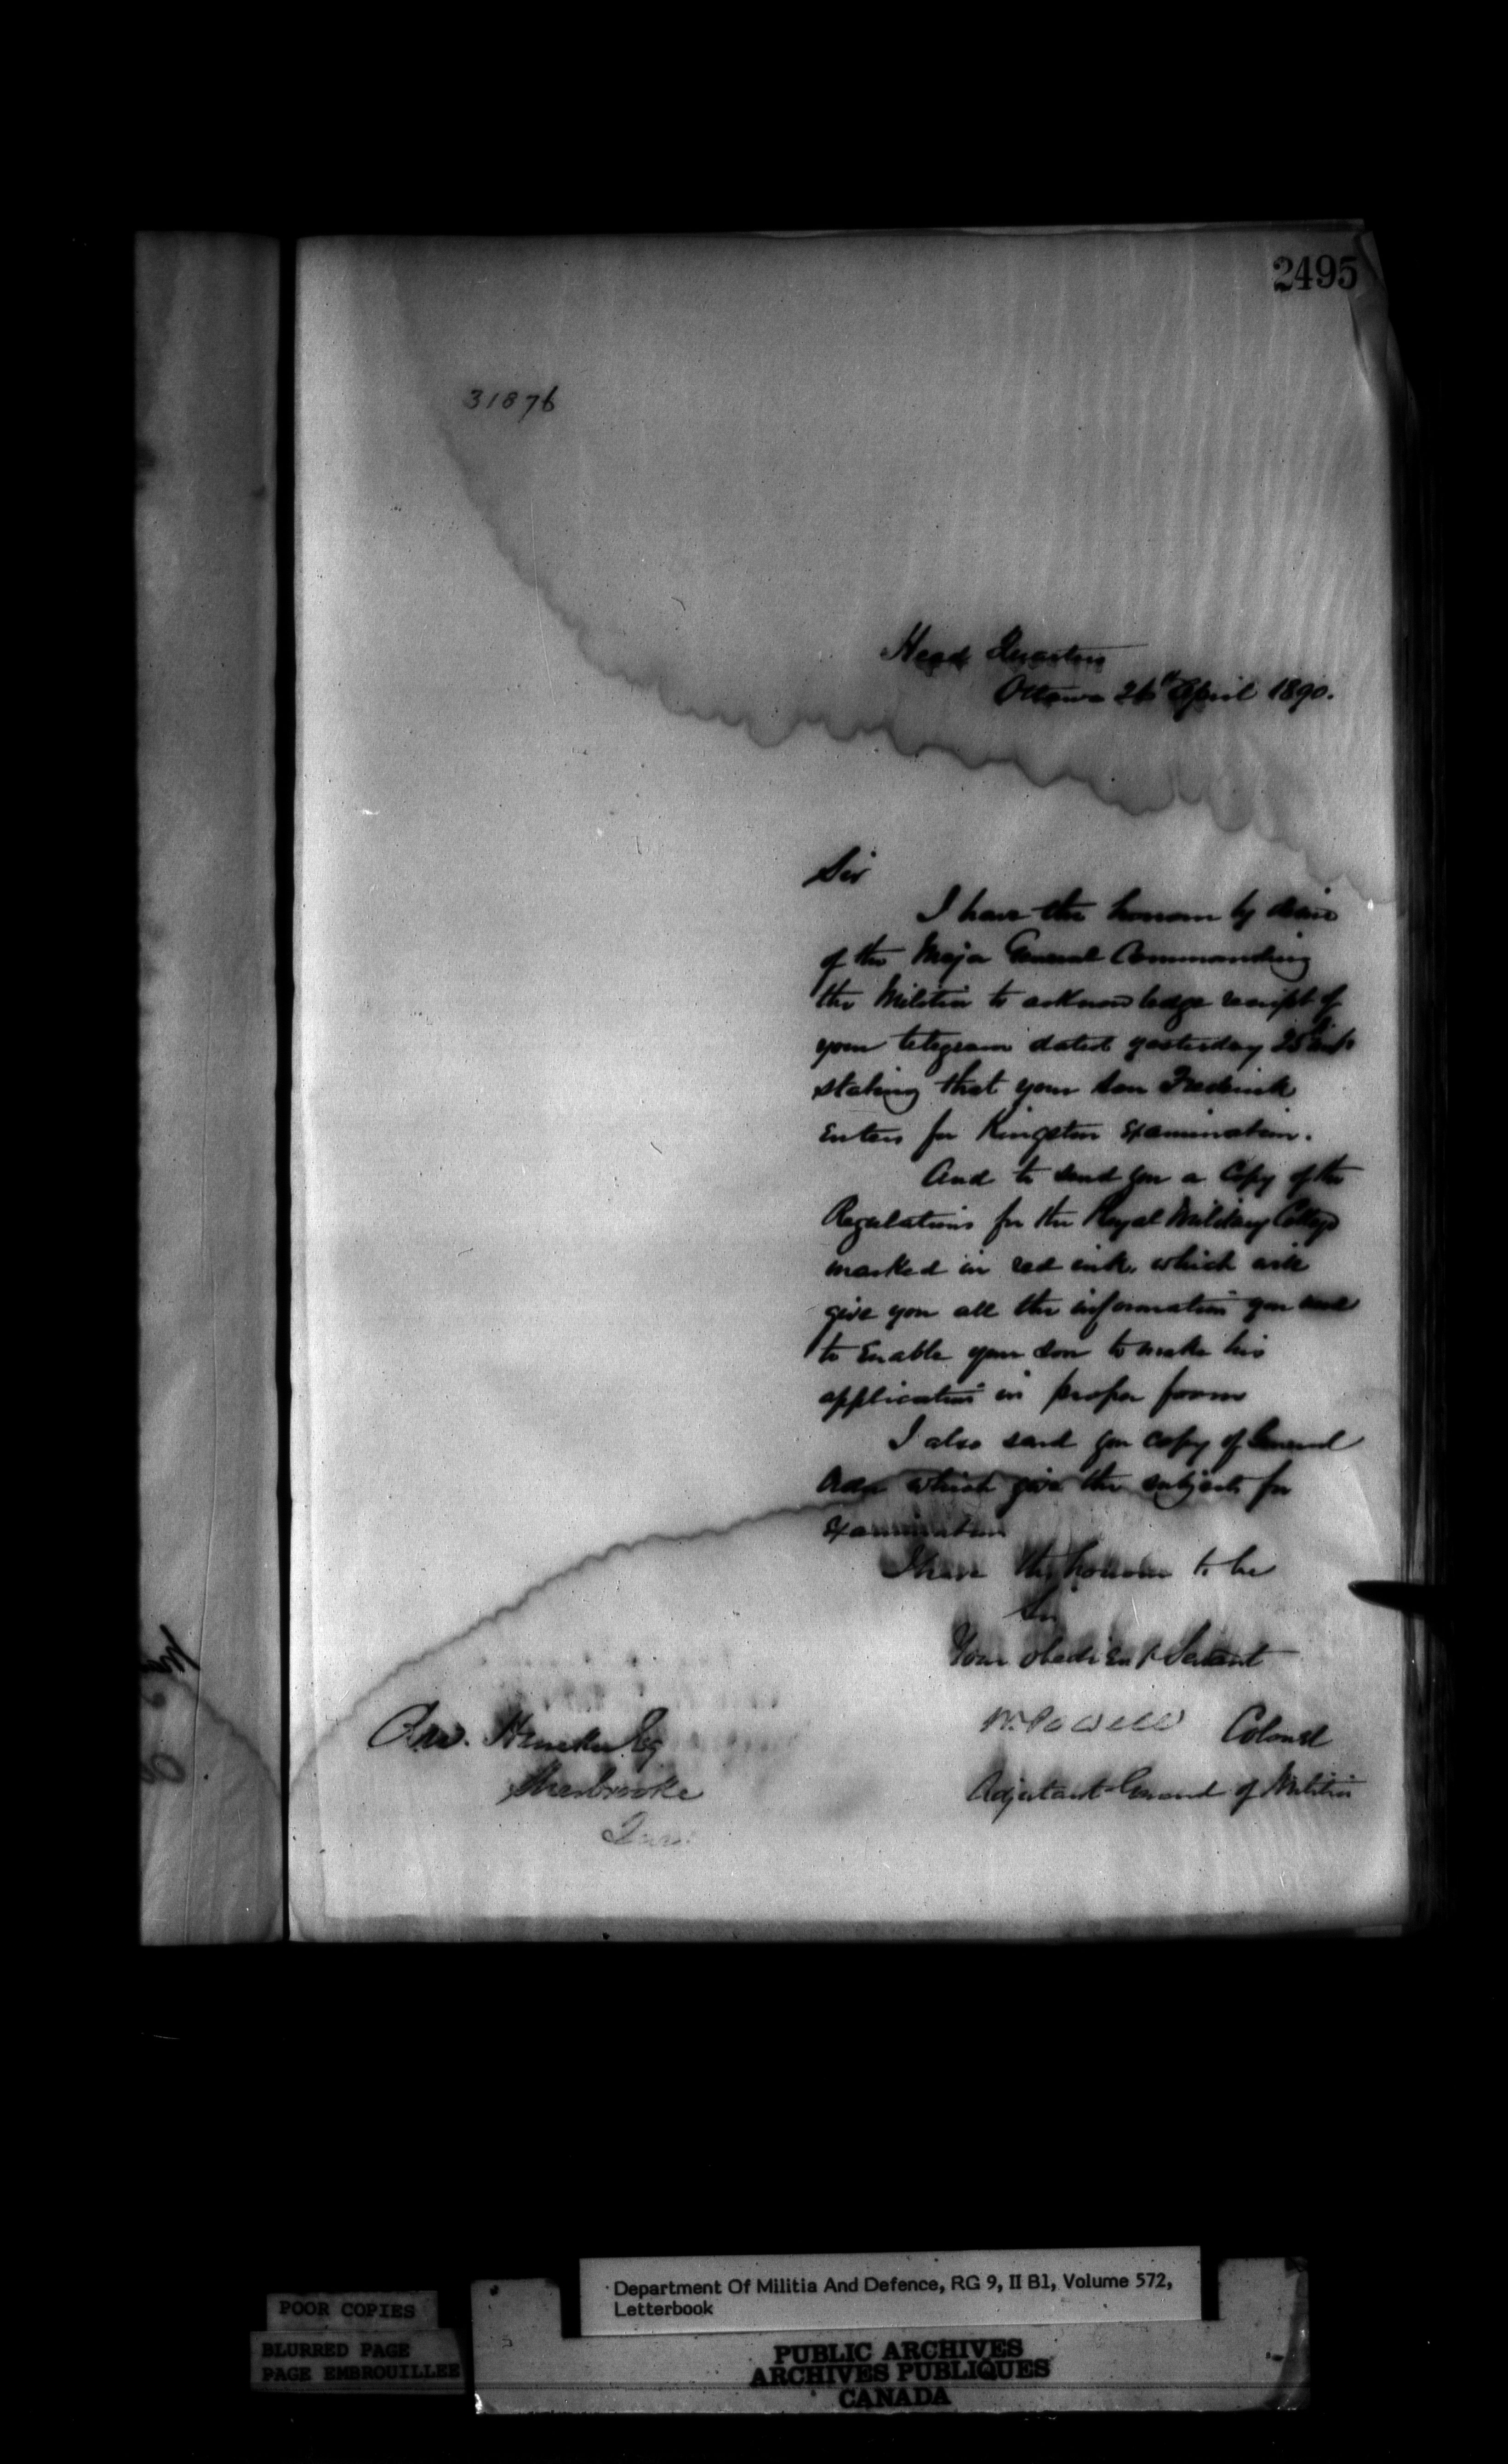 2495
31876
Head Quarters
Ottawa 26th April 1890.
Sir
I have the honour by desire
of the Major General Commanding
the Militia to acknowledge receipt of
your telegram dated yesterday 25th
stating that your son Frederick
Enters for Kingston Examination.
And to send you a Copy of the
Regulations for the Royal Military College
marked in red ink, which will
give you all the information you
to Enable your son to make his
application in proper form
I also send you copy of General
Order which give the subjects for
Examination
I have the honour to be
Sir
Your obedient Servant
W. Powell Colonel
Adjutant General of Militia
Heneker Esq
Sherbrooke
Que.
Department Of Militia And Defence, RG 9, II B1, Volume 572,
Letterbook
POOR COPIES
BLURRED PAGE
PAGE EMBROUILLEE
PUBLIC ARCHIVES
ARCHIVES PUBLIQUES
CANADA